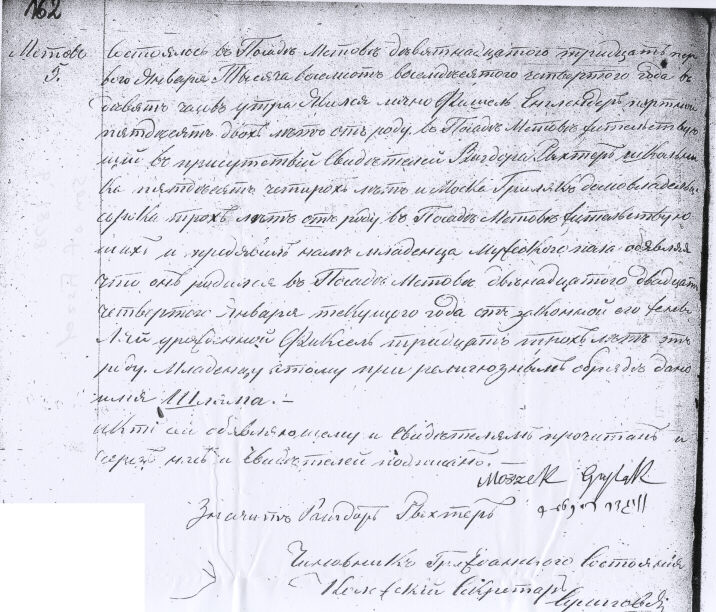 162
Мстовъ
5.
Состоялось въ Посадѣ Мстовѣ девятнадцатого тридцать пер
вого Января Тысяча восемьсотъ восемьдесятого четвертого года въ
девять часовъ утра. Явился лично Фишель Енглендеръ портной
пятдесятъ двохъ лѣтъ отъ роду въ Посадѣ Мстовѣ жительствую
щій въ присутствій Свидѣтелей Вигдора Рыхтеръ школьни
ка пятдесятъ четирохъ лѣтъ и Моска Гриляк домовладельца
сорока трохъ лѣтъ отъ роду въ Посадѣ Мстовѣ жительствую
щихъ и предявилъ намъ младенца мужского пола обявляя
что онъ родился въ Посадѣ Мстовѣ двѣнадцатого двадцать
четвертого Января текущого года отъ законной его жены
Лаи урожденной Фиксель тридцать трохъ лѣтъ отъ
роду. Младенцу этому при религіозномъ обрядѣ дано
имя Шляма. —
Актъ сей обявляющему и Свидѣтелямъ прочитанъ и
черезъ насъ и Свидѣтелей подписано.
Moszek Grylak
Значитъ Вигдоръ Рыхтеръ
Чиновникъ Гражданского Состоянія
Колежскій Секретарь